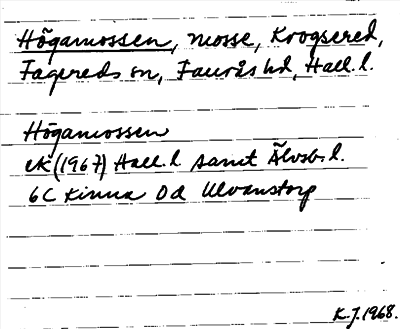 Högamossen, mosse, Krogsered,
Fagereds sn, Faurås hd, Hall. l.
Högamossen
ek (1967) Hall. l samt Älvsb. l.
6C Kinna 0d Ulvanstorp
K.J. 1968.